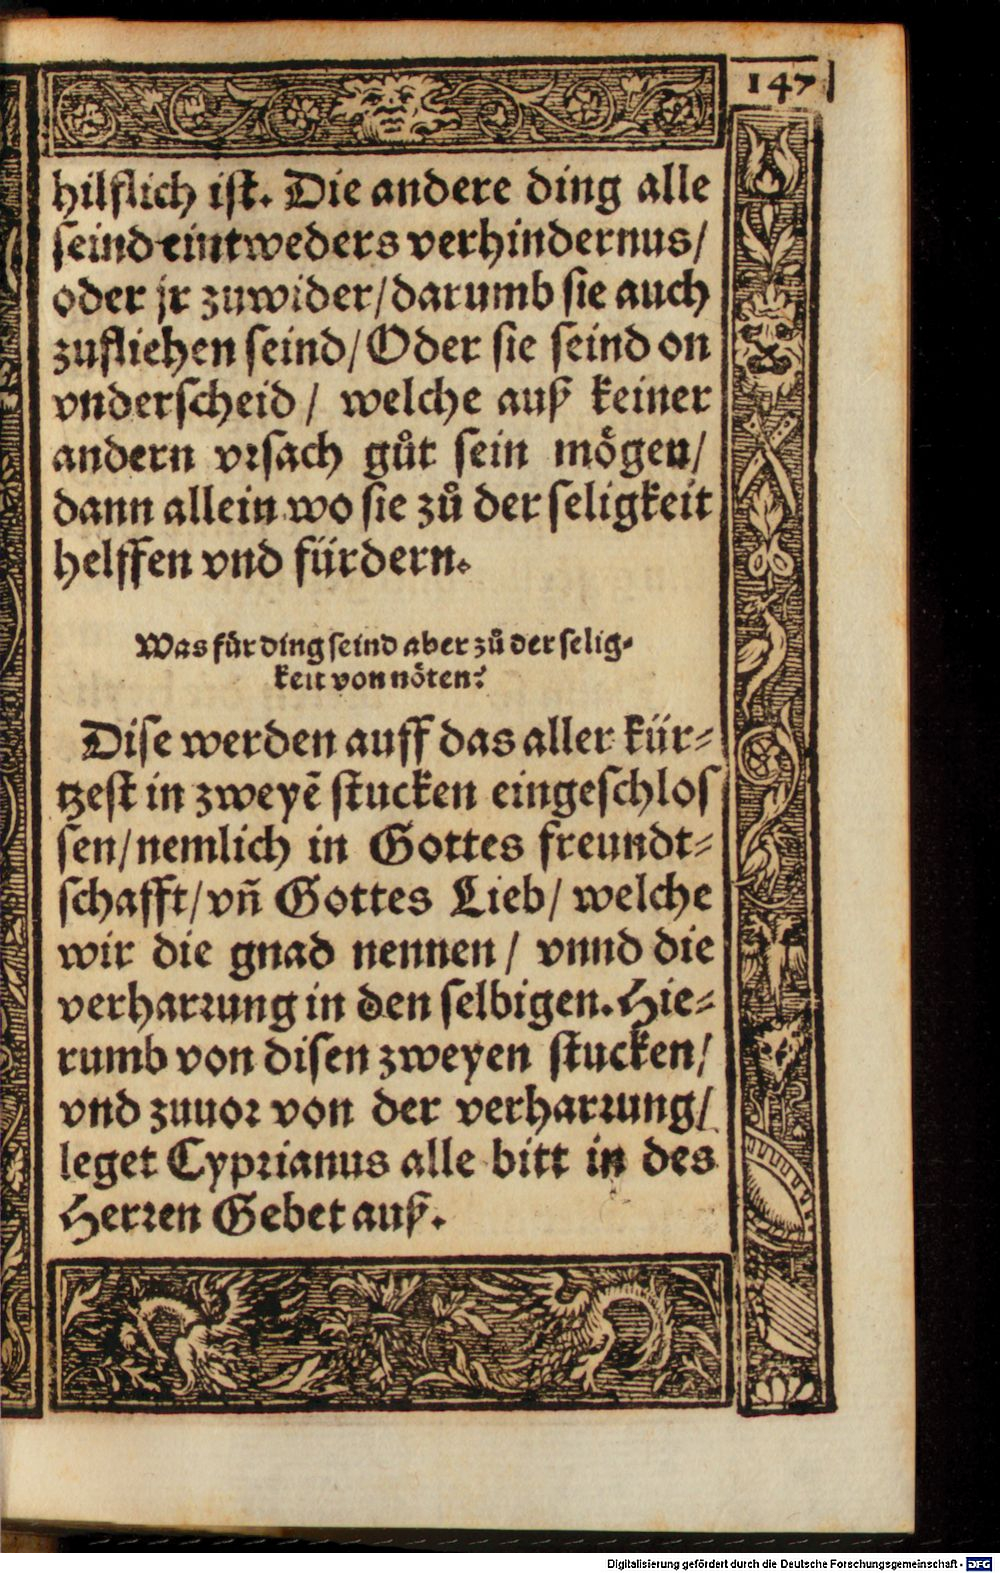 147
hilflich ist. Die andere ding alle
seind eintweders verhindernus/
oder jr zuwider/darumb sie auch
zufliehen seind/Oder sie seind on
vnderscheid/ welche auß keiner
andern vrsach gůt sein mögen/
dann allein wo sie zů der seligkeit
helffen vnd fürdern.
Was für ding seind aber zů der selig-
keit von nöten?
Dise werden auff das aller kür-
tzest in zweyē stucken eingeschlos
sen/nemlich in Gottes freundt-
schafft/vñ Gottes Lieb/ welche
wir die gnad nennen/ vnnd die
verharrung in den selbigen. Hie-
rumb von disen zweyen stucken/
vnd zuuor von der verharrung/
leget Cyprianus alle bitt in des
Herren Gebet auß.
Digitalisierung gefördert durch die Deutsche Forschungsgemeinschaft - DFG